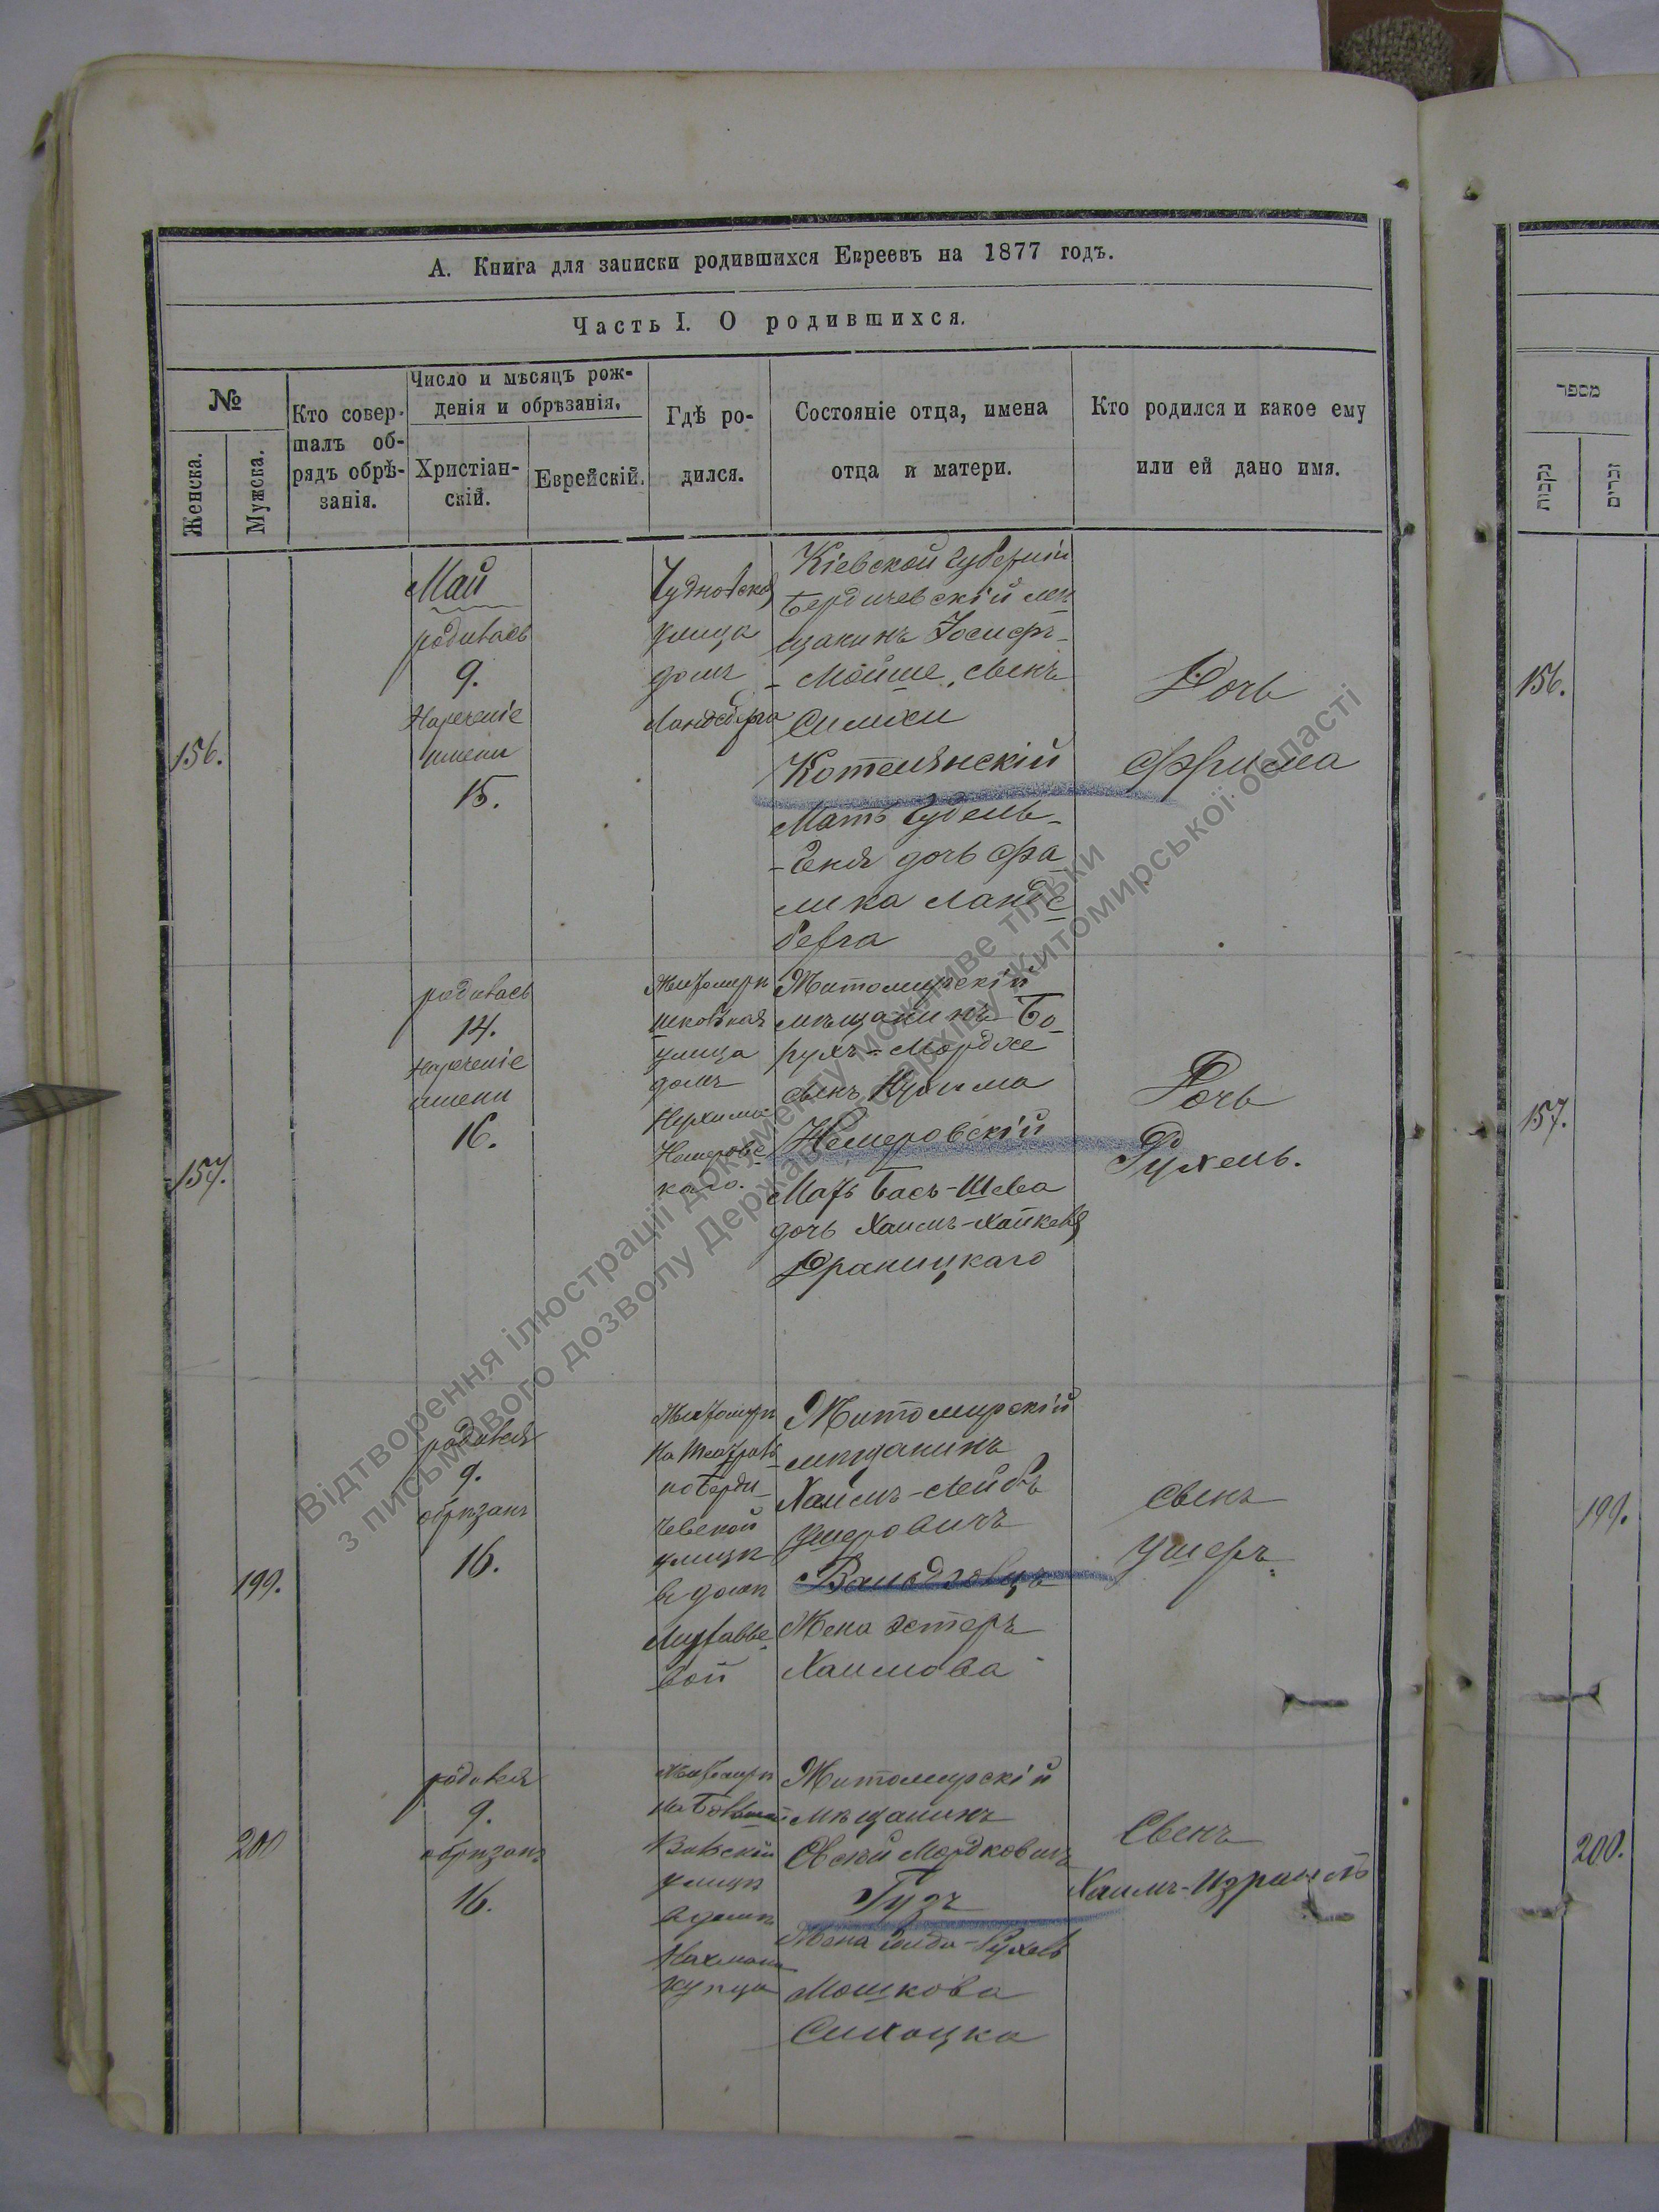 А. Книга для записки родившихся Евреевъ на 1877 годъ.
Часть I. О родившихся.
№
Женска.
Мужска.
Кто совер-
шалъ об-
рядъ обрѣ-
занія.
Число и мѣсяцъ рож-
денія и обрѣзанія.
Христіан-
скій.
Еврейскій.
Гдѣ ро-
дился.
Состояніе отца, имена
отца и матери.
Кто родился и какое ему
или ей дано имя.
156.
Май
родилась
9.
Нареченіе
имени
15.
Чудновская
улица
домъ
Ландсберга
Кіевской губерніи
Бердичевскій мѣ
щанинъ Іосифъ-
-Мойше, сынъ
Симхи
Котелянскій
Мать Гудель-
-Бейля дочь Фра
има Ландс
берга
Дочь
Фрима
157.
родилась
14.
Нареченіе
имени
16.
улица
домъ
Нухима
Немеровс
каго.
Житомирскій
мѣщанинъ Бо
рухъ-Мордхе
сынъ Нухима
Немеровскій
Мать Бась-Шева
дочь Хаимъ-Хайкеля
Драницкаго
Дочь
Рухель.
199.
родился
9.
обрѣзанъ
16.
по Берди
чевской
улицѣ
въ домѣ
Житомирскій
мѣщанинъ
Хаимъ-Лейбъ
Ушеровичъ
Жена Эстеръ
Хаимова
сынъ
Ушеръ
200
родился
9.
обрѣзанъ
16.
улицѣ
въ домѣ
Нахмана
купца
Житомирскій
мѣщанинъ
Овсей Мордковичъ
Гузъ
Жена Голда-Рухель
Мошкова
Сихоцка
Сынъ
Хаимъ-Израиль
מספר
נקבות
זכרים
156.
157.
199.
200.
Відтворення ілюстрації документу можливе тільки
з письмового дозволу Державного архіву Житомирської області